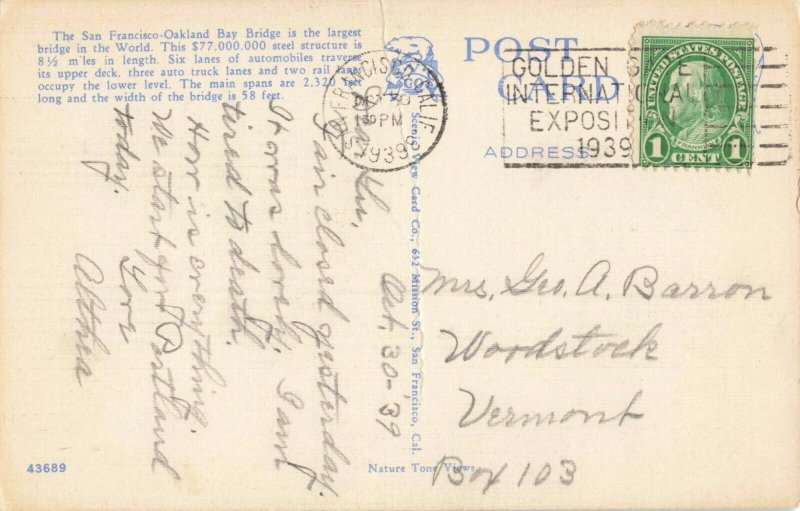 The San Francisco-Oakland Bay Bridge is the largest
bridge in the World. This $77,000,000 steel structure is
8½ miles in length. Six lanes of automobiles traverse
its upper deck, three auto truck lanes and two rail
occupy the lower level. The main spans are 2,320 feet
long and the width of the bridge is 58 feet.
POST
CARD
ADDRESS
SAN FRANCISCO, CALIF.
PM
1939
GOLDEN GATE
INTERNATIONAL
EXPOSI
1939
UNITED STATES POSTAGE
FRANKLIN
1 CENT 1
Oct, 30-'39
Fair closed yesterday.
It was lovely. I am
tired to death.
How is everything.
We start for Portland
today.
Love
Althea
Mrs. Geo. A. Barron
Woodstock
Vermont
Box 103
Scenic View Card Co., 632 Mission St., San Francisco, Cal.
43689
Nature Tone Views